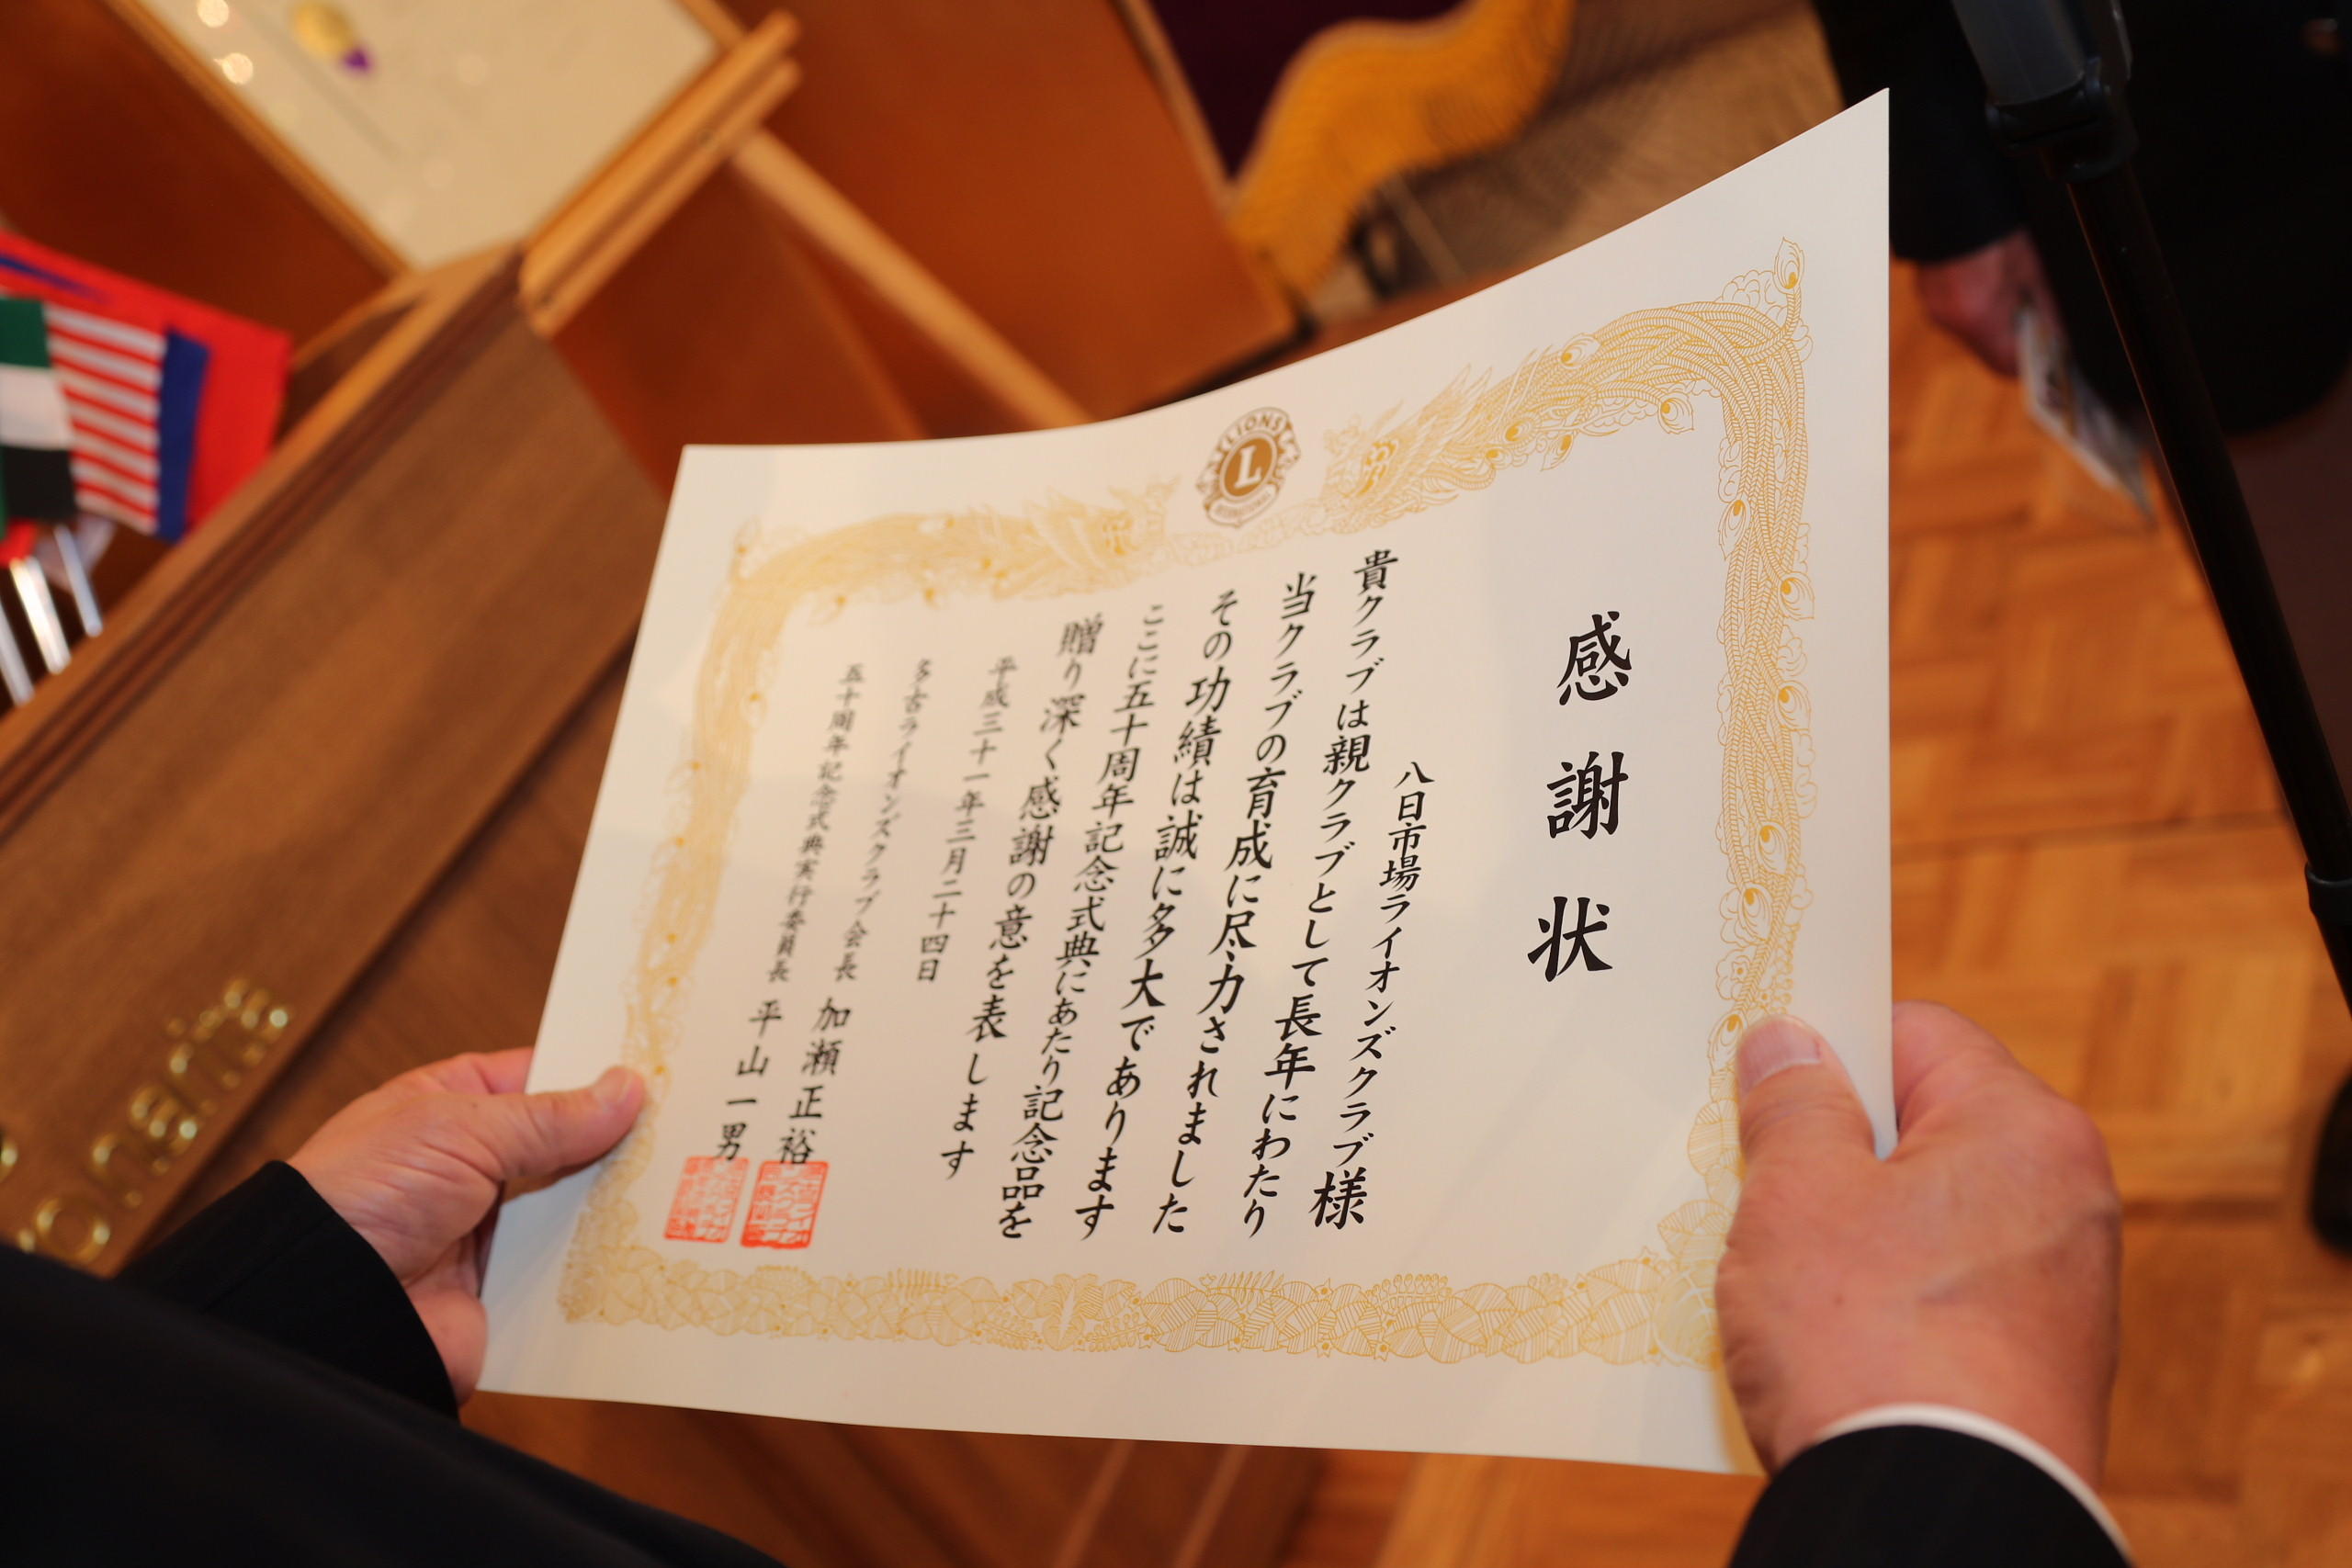 LIONS
L
INTERNATIONAL
感謝状
八日市場ライオンズクラブ様
貴クラブは親クラブとして長年にわたり
当クラブの育成に尽力されました
その功績は誠に多大であります
ここに五十周年記念式典にあたり記念品を
贈り深く感謝の意を表します
平成三十一年三月二十四日
多古ライオンズクラブ会長 加瀬正裕
五十周年記念式典実行委員長 平山一男